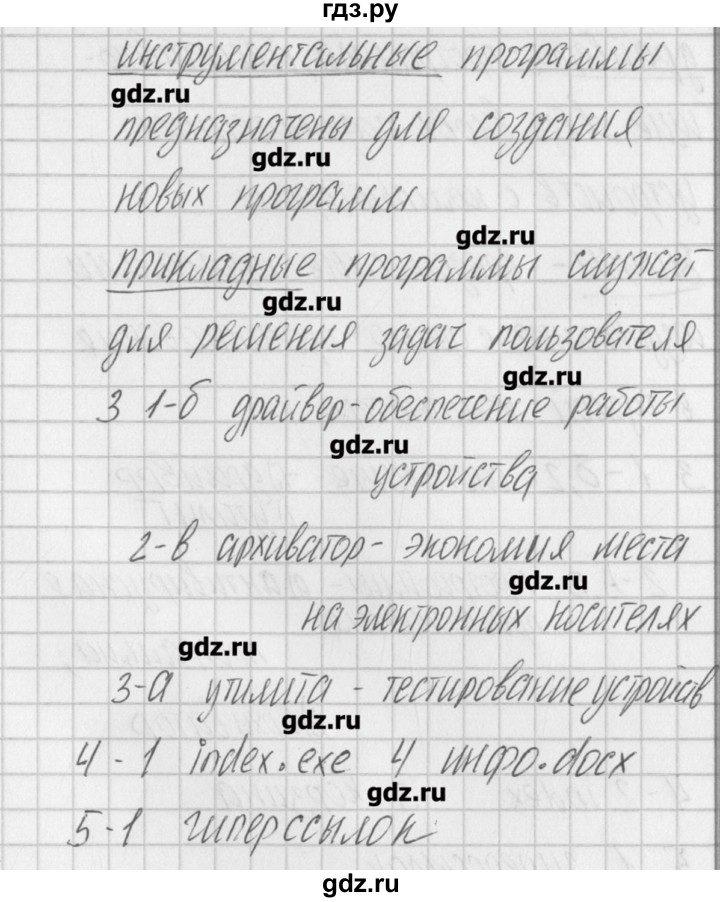 гдз.ру
инструментальные программы
gdz.ru
предназначены для создания
gdz.ru
новых программ
gdz.ru
прикладные программы служат
gdz.ru
для решения задач пользователя
gdz.ru
3 1-б драйвер-обеспечение работы
gdz.ru
устройства
2-в архиватор- экономия места
gdz.ru
на электронных носителях
gdz.ru
3-а утилита - тестирование устройств
gdz.ru
4-1 index.exe 4 инфо.docx
gdz.ru
5-1 гиперссылок
gdz.ru